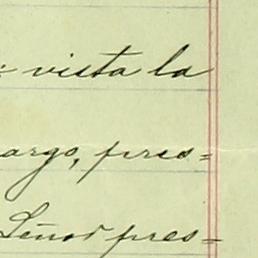 : vista la
argo, pres=
Señor pres=